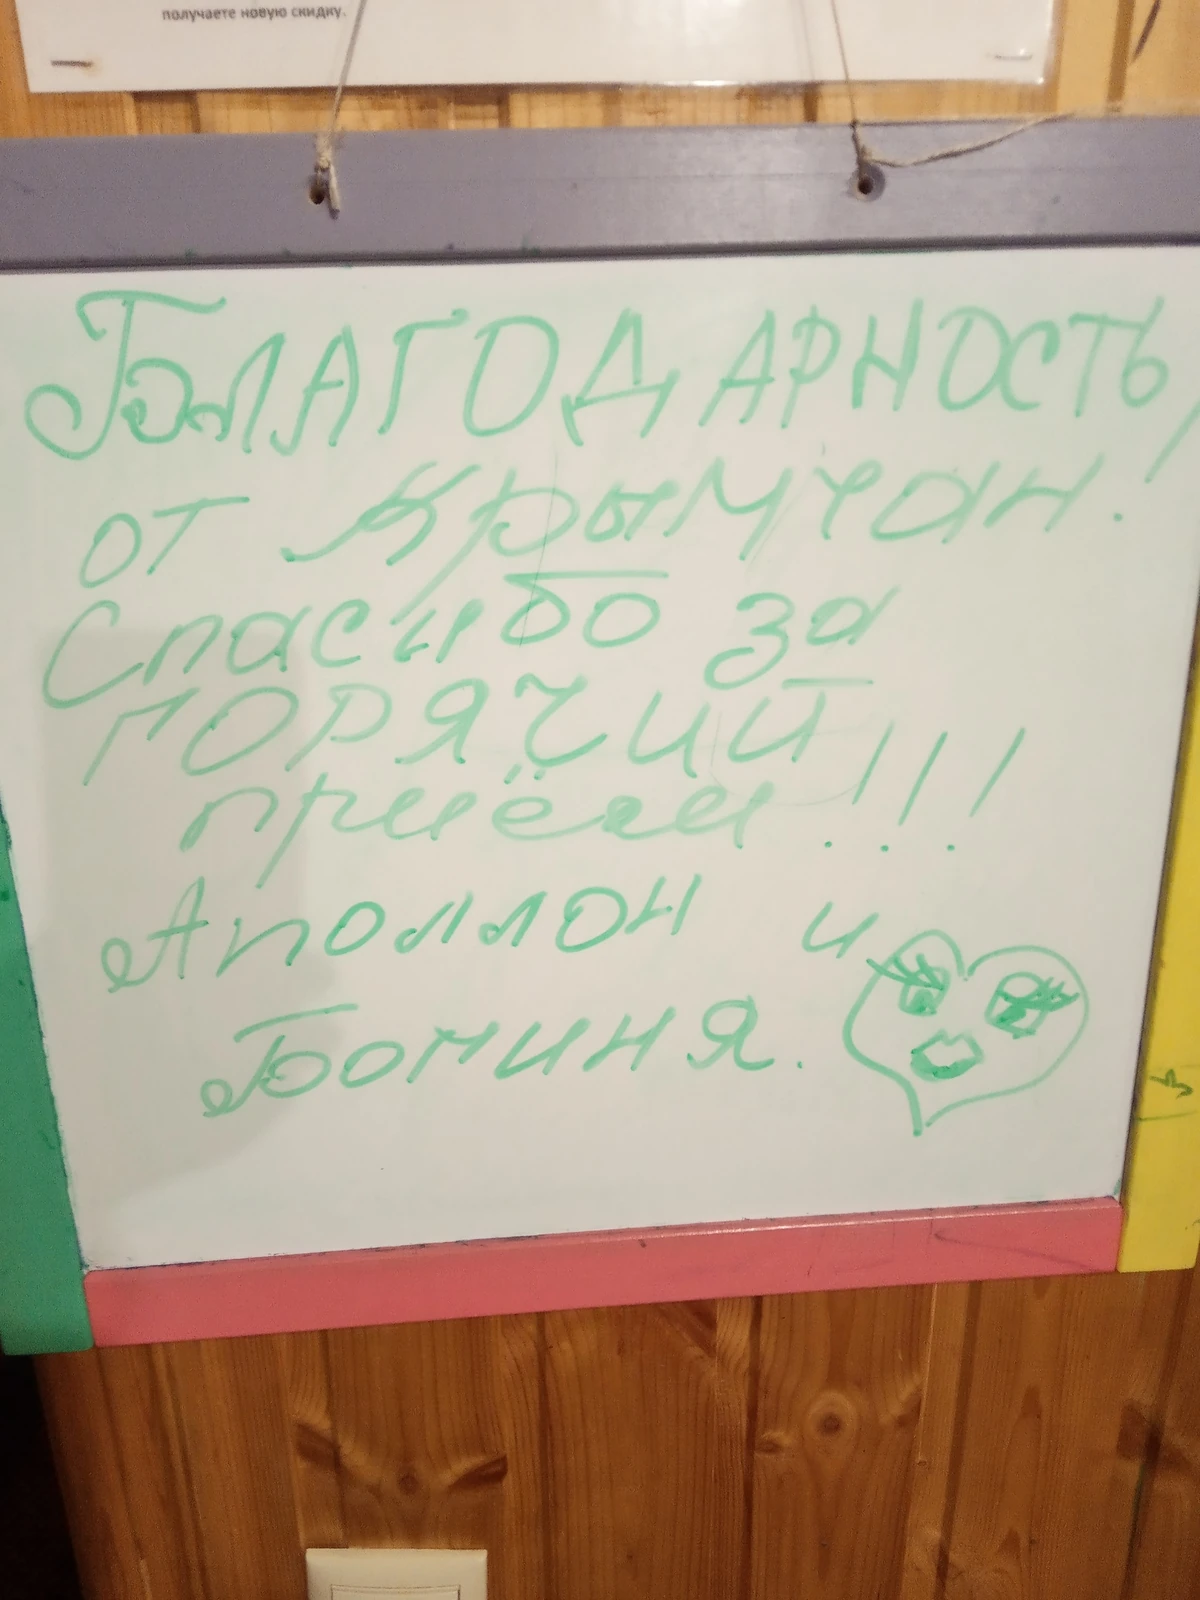 получаете новую скидку.
БлАГОДАРНОСТЬ
от Крымчан!
Спасибо за
горячий
приём!!!
Аполлон и
Богиня.